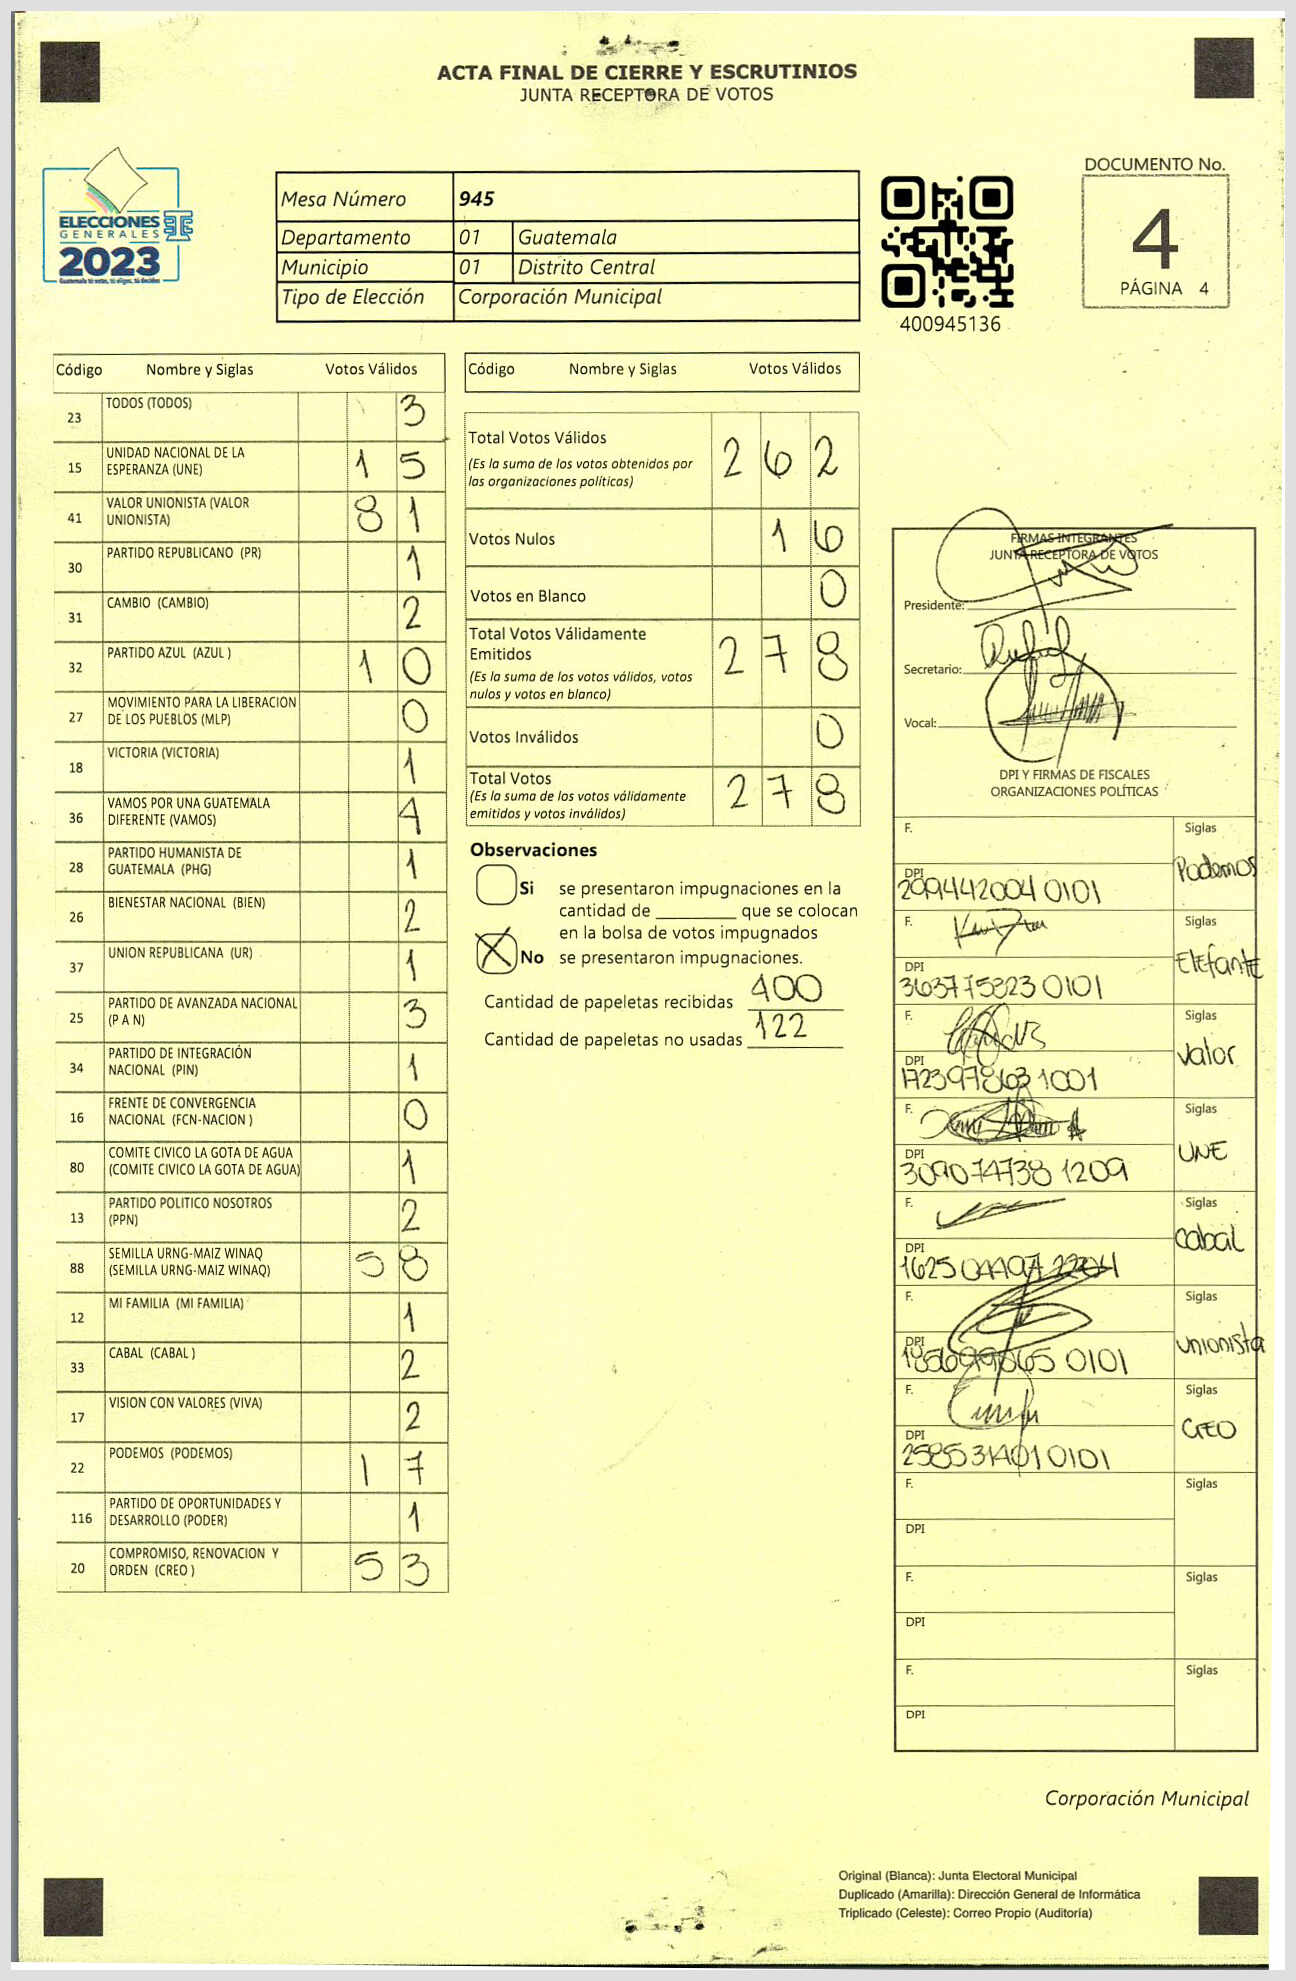 ACTA FINAL DE CIERRE Y ESCRUTINIOS
JUNTA RECEPTORA DE VOTOS
ELECCIONES
GENERALES
2023
Mesa Número 945
Departamento 01 Guatemala
Municipio 01 Distrito Central
Tipo de Elección Corporación Municipal
400945136
DOCUMENTO No.
4
PÁGINA 4
Código Nombre y Siglas Votos Válidos
23 TODOS (TODOS) 3
15 UNIDAD NACIONAL DE LA ESPERANZA (UNE) 15
41 VALOR UNIONISTA (VALOR UNIONISTA) 81
30 PARTIDO REPUBLICANO (PR) 1
31 CAMBIO (CAMBIO) 2
32 PARTIDO AZUL (AZUL ) 10
27 MOVIMIENTO PARA LA LIBERACION DE LOS PUEBLOS (MLP) 0
18 VICTORIA (VICTORIA) 1
36 VAMOS POR UNA GUATEMALA DIFERENTE (VAMOS) 4
28 PARTIDO HUMANISTA DE GUATEMALA (PHG) 1
26 BIENESTAR NACIONAL (BIEN) 2
37 UNION REPUBLICANA (UR) 1
25 PARTIDO DE AVANZADA NACIONAL (P A N) 3
34 PARTIDO DE INTEGRACIÓN NACIONAL (PIN) 1
16 FRENTE DE CONVERGENCIA NACIONAL (FCN-NACION ) 0
80 COMITE CIVICO LA GOTA DE AGUA (COMITE CIVICO LA GOTA DE AGUA) 1
13 PARTIDO POLITICO NOSOTROS (PPN) 2
88 SEMILLA URNG-MAIZ WINAQ (SEMILLA URNG-MAIZ WINAQ) 58
12 MI FAMILIA (MI FAMILIA) 1
33 CABAL (CABAL ) 2
17 VISION CON VALORES (VIVA) 2
22 PODEMOS (PODEMOS) 17
116 PARTIDO DE OPORTUNIDADES Y DESARROLLO (PODER) 1
20 COMPROMISO, RENOVACION Y ORDEN (CREO ) 53
Código Nombre y Siglas Votos Válidos
Total Votos Válidos 262
(Es la suma de los votos obtenidos por
las organizaciones políticas)
Votos Nulos 16
Votos en Blanco 0
Total Votos Válidamente
Emitidos 278
(Es la suma de los votos válidos, votos
nulos y votos en blanco)
Votos Inválidos 0
Total Votos 278
(Es la suma de los votos válidamente
emitidos y votos inválidos)
Observaciones
Si se presentaron impugnaciones en la
cantidad de ________ que se colocan
en la bolsa de votos impugnados
X No se presentaron impugnaciones.
Cantidad de papeletas recibidas 400
Cantidad de papeletas no usadas 122
FIRMAS INTEGRANTES
JUNTA RECEPTORA DE VOTOS
Presidente:
Secretario:
Vocal:
DPI Y FIRMAS DE FISCALES
ORGANIZACIONES POLÍTICAS
F. Siglas
Podemos
DPI
299442004 0101
F. Siglas
Elefante
DPI
363775823 0101
F. Siglas
Valor
DPI
172397863 1001
F. Siglas
UNE
DPI
309074738 1209
F. Siglas
cabal
DPI
F. Siglas
unionista
DPI
F. Siglas
CREO
DPI
258531401 0101
F. Siglas
DPI
F. Siglas
DPI
F. Siglas
DPI
Corporación Municipal
Original (Blanca): Junta Electoral Municipal
Duplicado (Amarilla): Dirección General de Informática
Triplicado (Celeste): Correo Propio (Auditoría)